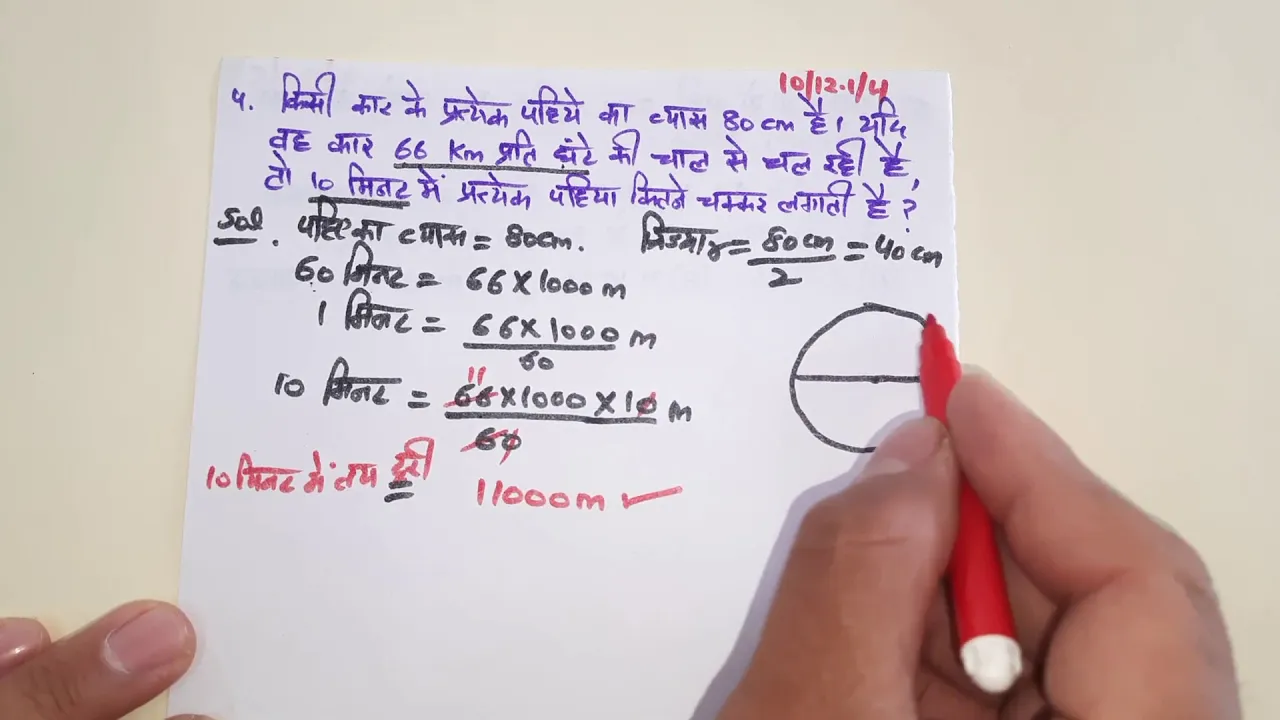 10/12.1/4
4. किसी कार के प्रत्येक पहिये का व्यास 80 cm है। यदि
वह कार 66 Km प्रति घंटे की चाल से चल रही है,
तो 10 मिनट में प्रत्येक पहिया कितने चक्कर लगाती है ?
Sol. पहिए का व्यास = 80cm. त्रिज्या r = 80cm/2 = 40 cm
60 मिनट = 66 × 1000 m
1 मिनट = 66 × 1000/60 m
11
10 मिनट = 66 × 1000 × 10/60 m
10 मिनट में तय दूरी 11000m ✓